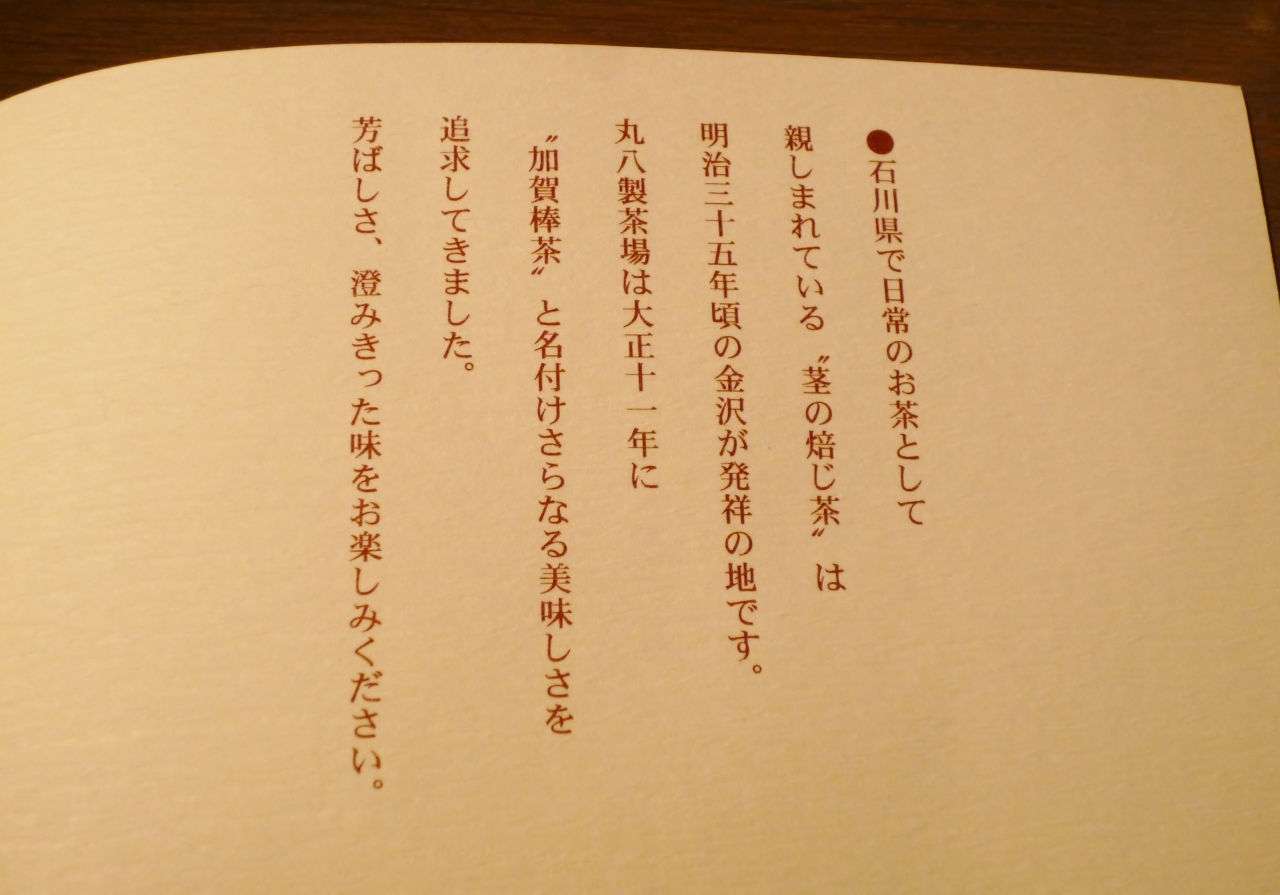 ●石川県で日常のお茶として
親しまれている〝茎の焙じ茶〟は
明治三十五年頃の金沢が発祥の地です。
丸八製茶場は大正十一年に
〝加賀棒茶〟と名付けさらなる美味しさを
追求してきました。
芳ばしさ、澄みきった味をお楽しみください。